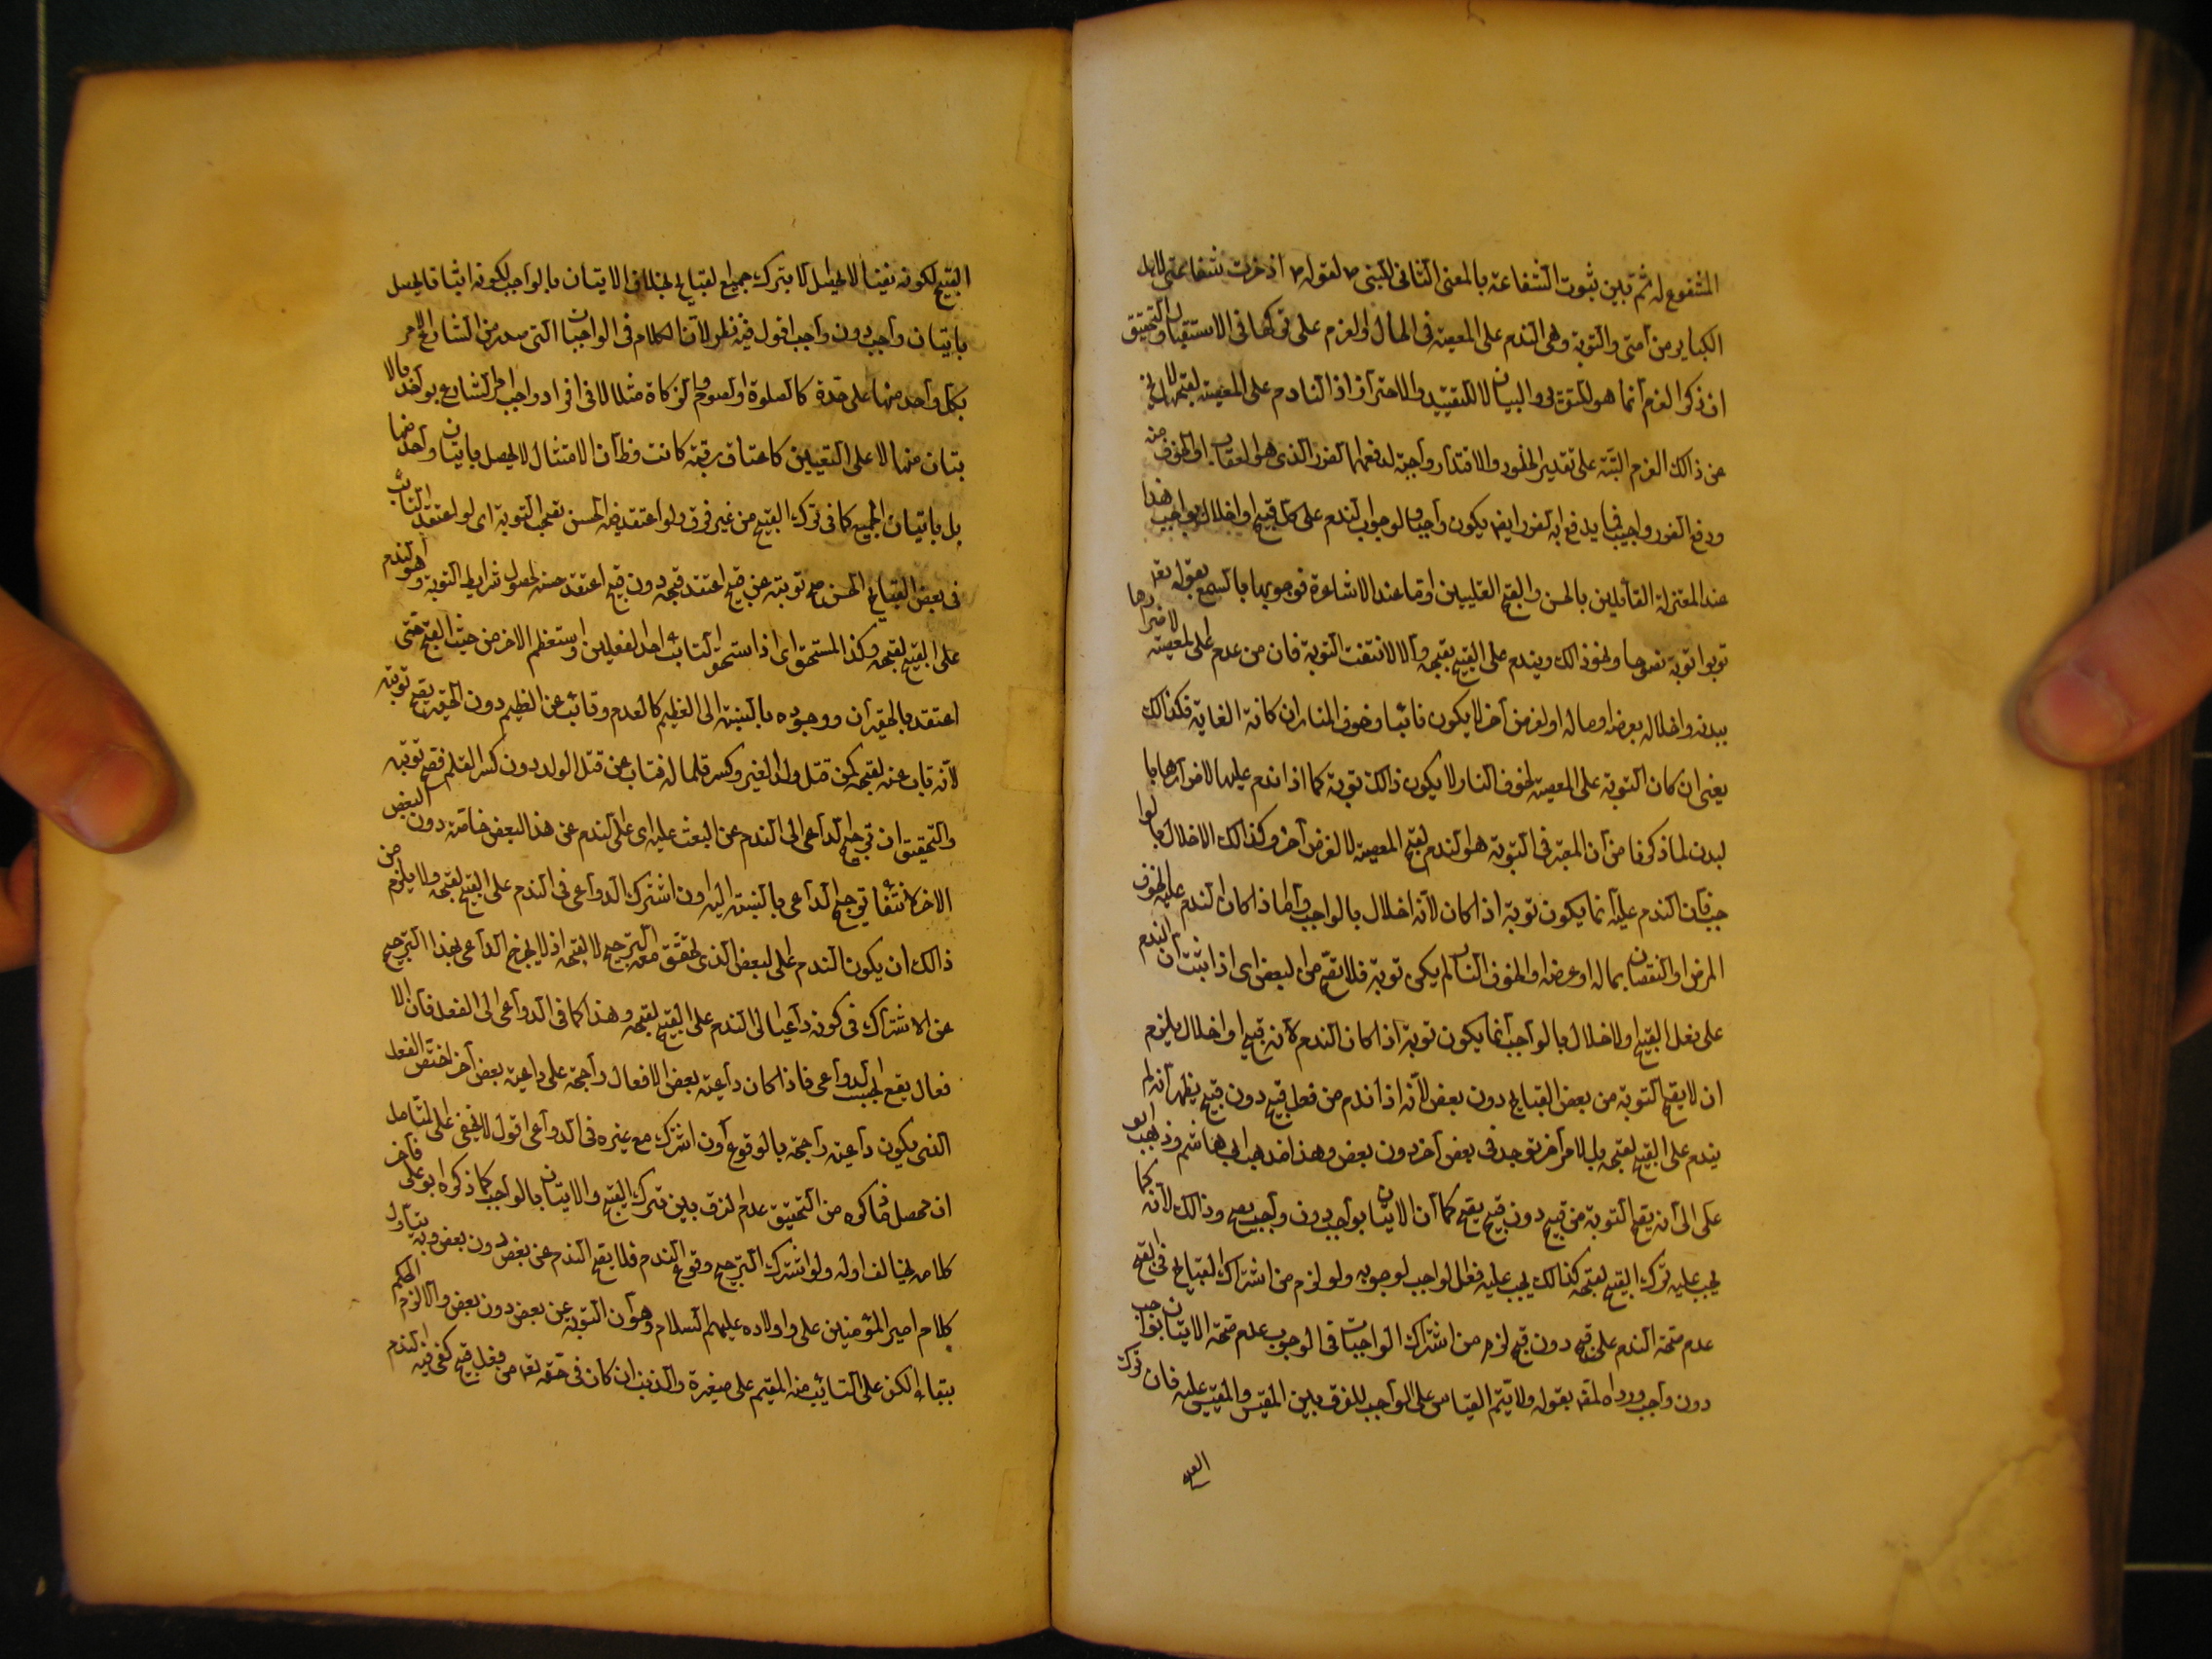 المشفوع له ثم بين ثبوت الشفاعة بالمعنى الثانى للنبى ص لقوله ص ادخرت شفاعتى لاهل
الكباير من امتى والتوبة وهى الندم على المعصية فى الحال والعزم على تركها فى الاستقبال والتحقيق
ان ذكر العزم انما هو للتقرير والبيان لا للتقييد والاحتراز اذ النادم على المعصية لقبحها لا يخ
عن ذالك العزم البتة على تقدير الخطور والاقتدار واجبة لدفعها الضرر الذى هو العقاب او الخوف منه
ودفع الضرر واجب فما يدفع به الضرر ايضا يكون واجبا ولوجوب الندم على كل قبيح او اخلال بواجب هذا
عند المعتزلة القائلين بالحسن والقبح العقليين واما عند الاشاعرة فوجوبها بالسمع بقوله تعا
توبوا توبة نصوحا ونحو ذالك ويندم على القبيح بقبحه والا لانتفت التوبة فان من ندم على المعصية لاضرارها
ببدنه واخلاله بعرضه او ماله او لغرض آخر لا يكون تائبا وخوف النار ان كانه الغاية فكذالك
يعنى ان كان التوبة على المعصية لخوف النار لا يكون ذالك توبة كما اذا ندم عليها لاضرارها با
لبدن لما ذكرنا من ان المعتبر فى التوبة هو الندم لقبح المعصية لا لغرض آخر وكذالك الاخلال بالوا
جب فان الندم عليه انما يكون توبة اذا كان لانه اخلال بالواجب واما اذا كان الندم عليه لخوف
المرض او النقصان بماله او عرضه او لخوف النار لم يكن توبة فلا تصح من البعض اى اذا ثبت ان الندم
على فعل القبيح او الاخلال بالواجب انما يكون توبة اذا كان الندم لانه قبيح او اخلال يلزم
ان لا يصح التوبة من بعض القبايح دون بعض لانه اذا ندم من فعل قبيح دون قبيح يظهر انه لم
يندم على القبيح لقبحه بل لامر آخر توجد فى بعض آخر دون بعض وهذا مذهب ابى هاشم وذهب ابو
على الى انه يصح التوبة من قبيح دون قبيح يصح كما ان الاتيان بواجب دون واجب يصح وذالك لانه كما
يجب عليه ترك القبيح لقبحه كذالك يجب عليه فعل الواجب لوجوبه ولو لزم من اشتراك القبايح فى القبح
عدم صحة الندم على قبيح دون قبيح لزم من اشتراك الواجبات فى الوجوب عدم صحة الاتيان بواجب
دون واجب ورده المص بقوله ولا يتم القياس على الواجب للفرق بين المقيس والمقيس عليه فان ترك
القبيح لكونه نفيا لا يحصل الا بترك جميع القبايح بخلاف الاتيان بالواجب لكونه اثباتا يحصل
باتيان واجب دون واجب اقول فيه نظر لان الكلام فى الواجبات التى صدر من الشارع الامر
بكل واحد منها على حدة كالصلوة والصوم والزكاة مثلا لا فى افراد واجب امر الشارع بواحد مالا
بتان منها لا على التعيين كاعتاق رقبة كانت وظ ان الامتثال لا يحصل باتيان واحد منها
بل باتيان الجميع كما فى ترك القبيح من غير فرق ولو اعتقد فيه الحسن تصح التوبة اى لو اعتقد التائب
فى بعض القبايح الحسن صح توبته عن قبيح اعتقد قبحه دون قبيح اعتقد حسنه لحصول شرايط التوبة وهو الندم
على القبيح لقبحه وكذا المستحقر اى اذا استحقر التائب احد الفعلين واستعظم الاخر من حيث القبح حتى
اعتقد بالحقير ان ووجوده بالنسبة الى العظيم كالعدم وتائب عن العظيم دون الحقير يصح توبته
لانه تاب عنه لقبحه كمن قتل ولد الغير وكسر قلما له فتاب عن قتل الولد دون كسر القلم فصح توبته
والتحقيق ان ترجيح الداعى الى الندم عن البعث عليه اى على الندم عن هذا البعض خاصة دون البعض
الاخر لانتفا ترجيح الداعى بالنسبة اليه وان اشترك الدواعى فى الندم على القبيح لقبحه ولا يلزم من
ذالك ان يكون الندم على البعض الذى تحقق معه الترجيح لا لقبحه اذ لا يخرج الداعى بهذا الترجيح
عن الاشتراك فى كونه داعيا الى الندم على القبيح لقبحه وهذا كما فى الدواعى الى الفعل فان الا
فعال يقع بحسب الدواعى فاذا كان داعية بعض الافعال راجحة على داعية بعض آخر اختص الفعل
الذى يكون داعيته راجحة بالوقوع وان اشترك مع غيره فى الدواعى اقول لا يخفى على المتامل
ان محصل ما ذكره من التحقيق عدم الفرق بين ترك القبيح والاتيان بالواجب كما ذكره ابو على فآخر
كلامه يخالف اوله ولو اشترك الترجيح وقوع الندم فلا يصح الندم عن بعض دون بعض وبه يتاول
كلام امير المؤمنين على واولاده عليهم السلام وهو ان التوبة عن بعض دون بعض والا لزم الحكم
ببقاء الكفر على التائب منه المقيم على صغيرة والذنب ان كان فى حقه تعا من فعل قبيح كفى فيه الندم